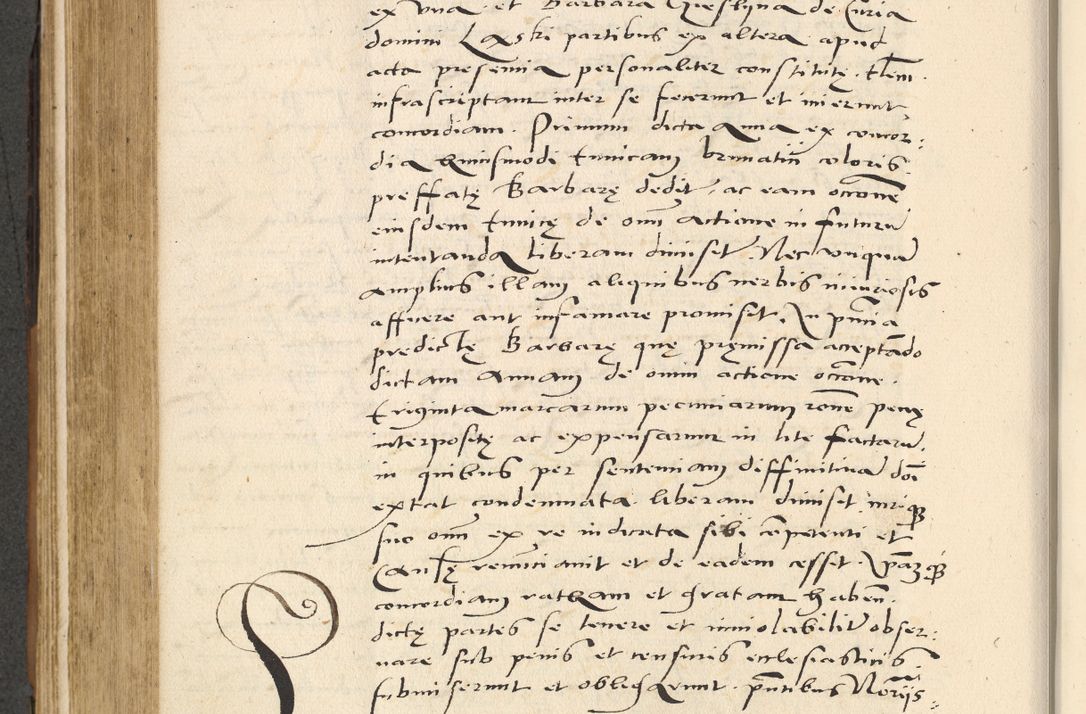 ex una et Barbara Cieslyna de Curia
domini Laski partibus ex altera apud
acta presentia personaliter constitutę talem
infrascriptam inter se fecerunt et inierunt
concordiam. Primum dicta Anna ex concor:
dia huiusmodi tunicam brunatici coloris
preffatę Barbarę dedit, ac eam occone
eiusdem tunicę de omni actione in futurum
intentanda liberam dimisit. Nec unquam
amplius illam aliquibus uerbis iniuriosis
afficere aut infamare promisit. In pnцia
predictę Barbarę quę pręmissa acceptando
dictam Annam de omni actione occone
triginta marcarum pecuniarum rone penę
interpositę ac expensarum in lite factarum
in quibus per sententiam diffinitiuam doi
extat condemnata liberam dimisit, iurique
suo omni ex re iudicata sibi competenti et
Causę renunciauit et de eadem cessit.
concordiam ratham et gratam haben.
dictę partes se tenere et inuiolabiliter obser:
uare sub penis et censuris ecclesiasticis
submiserunt et obligarunt. pntibus Norijs